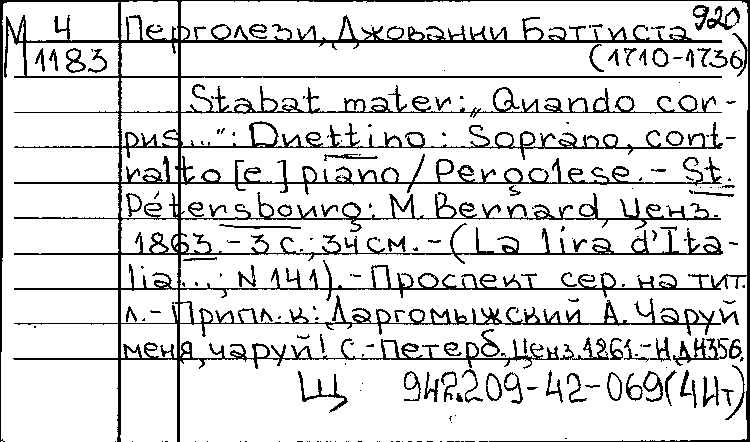 М 4 Перголези, Джованни Баттиста 920
1183 (1710-1736)
Stabat mater: „Quando cor-
pus...": Duettino: Soprano, cont-
ralto [e] piano / Pergolese. - St.
Pétersbourg: M. Bernard, ценз.
1863. - 3 с.; 34 см. - (La lira d'Ita-
lia...; N 141). - Проспект сер. на тит.
л. - Припл. к: Даргомыжский А. Чаруй
меня, чаруй! С.-Петерб., ценз. 1861. - Н.д. 4356.
Щ 942.209-42-069 (4Ит)